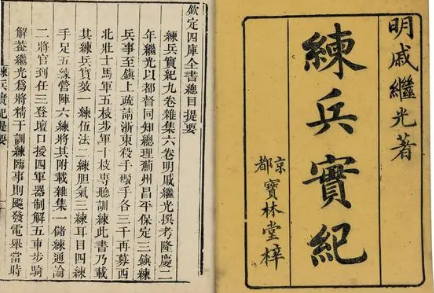 明戚繼光著
練兵實紀
京都寶林堂梓
欽定四庫全書總目提要
練兵實紀九卷雜集六卷明戚繼光撰考隆慶二
年繼光以都督同知總理薊州昌平保定三鎮練
兵事至鎮上疏請浙東殺手手各三千再募西
北壯士馬軍五枝步軍十枝專聽訓練此書乃載
其練兵實效一練伍法二練膽氣三練耳目四練
手足五練營陣六練將其附載雜集一儲練通論
二將官到任三登壇口授四軍器制解五車步騎
解葢繼光爲將精于訓練臨事則飈發電舉當時
練兵實紀提要